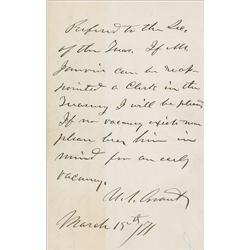 Referred to the Sec.
of the Treas. If Mr.
Jouvin can be reap-
pointed a Clerk in the
Treasury I will be pleased
If no vacancy exists now
please bear him in
mind for an early
vacancy.
U. S. Grant
March 19th /71